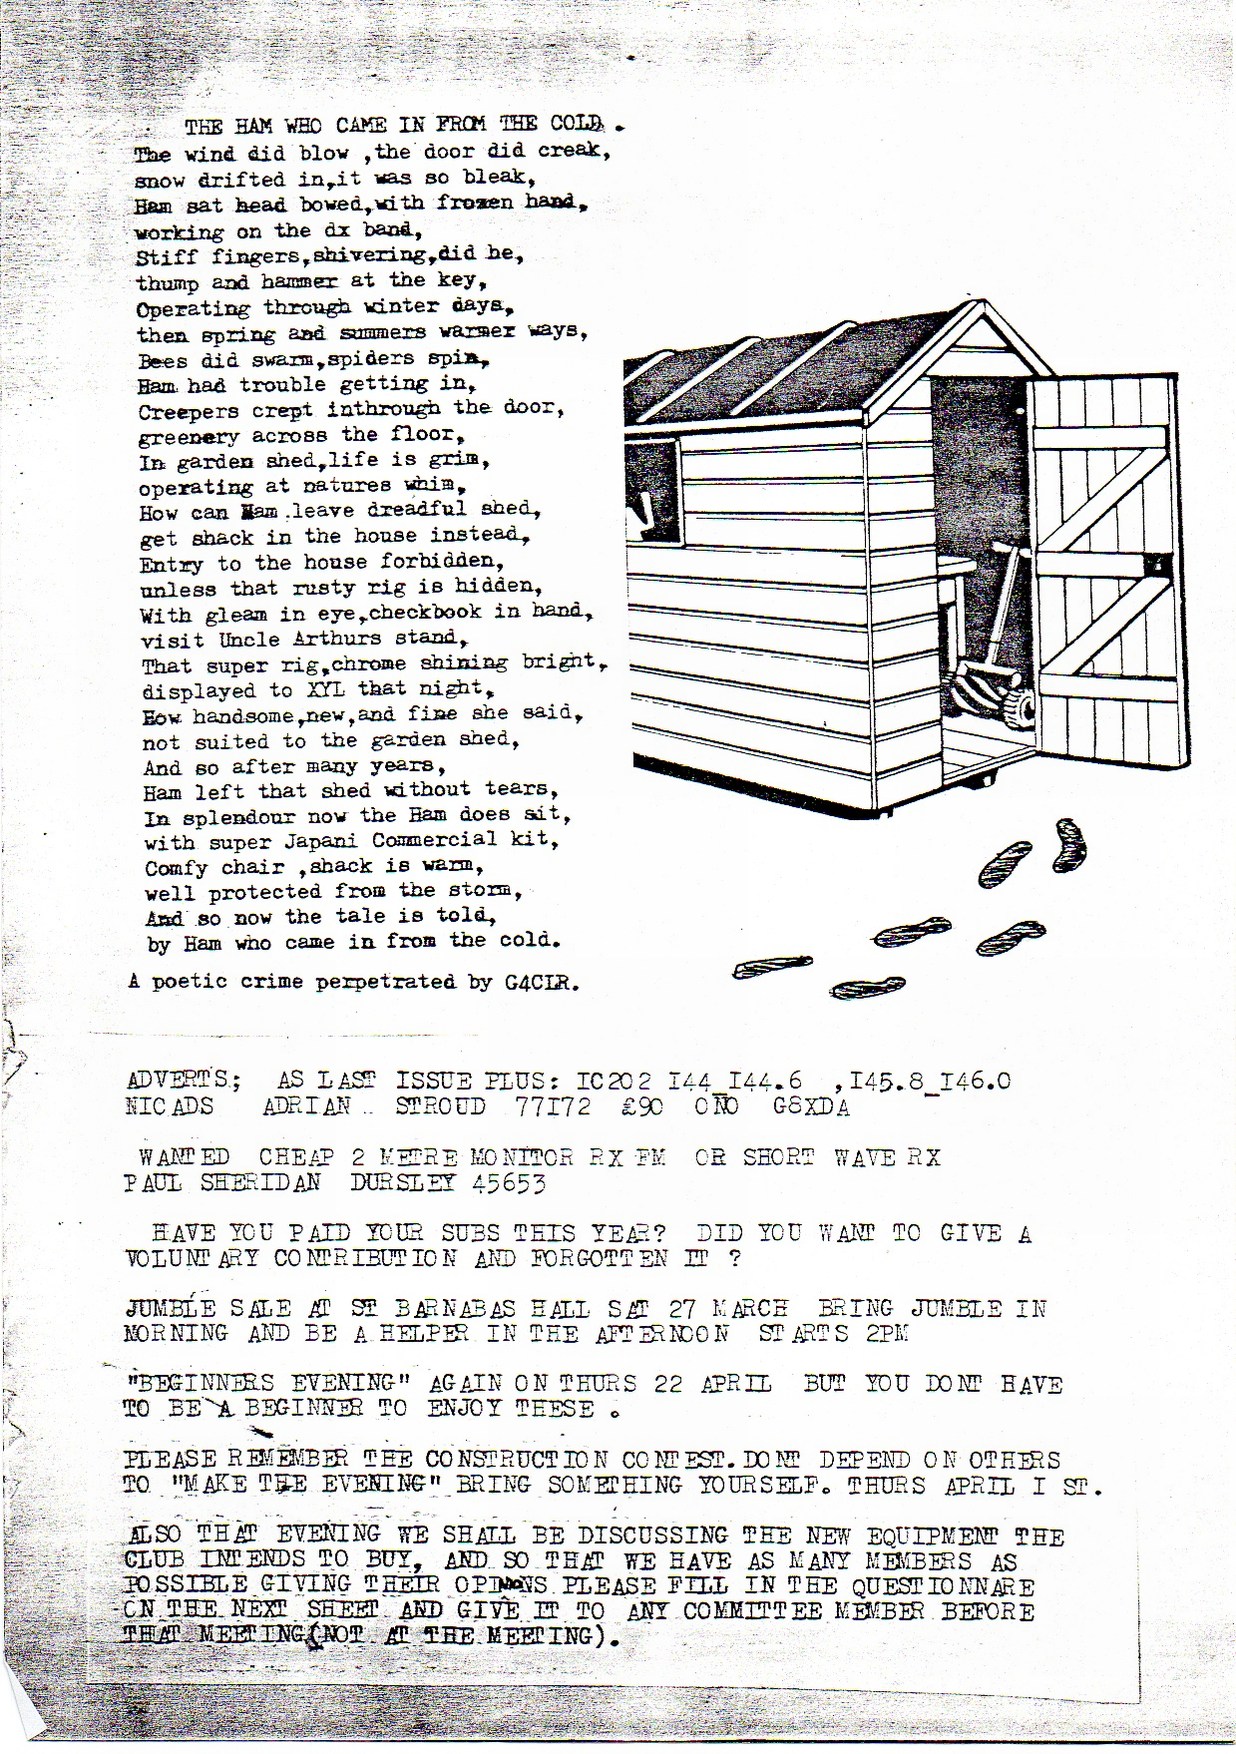 THE HAM WHO CAME IN FROM THE COLD.
The wind did blow ,the door did creak,
snow drifted in,it was so bleak,
Ham sat head bowed,with frozen hand,
working on the dx band,
Stiff fingers,shivering,did he,
thump and hammer at the key,
Operating through winter days,
then spring and summers warmer ways,
Bees did swarm,spiders spin,
Ham had trouble getting in,
Creepers crept inthrough the door,
greenery across the floor,
In garden shed,life is grim,
operating at natures whim,
How can Ham leave dreadful shed,
get shack in the house instead,
Entry to the house forbidden,
unless that rusty rig is hidden,
With gleam in eye,checkbook in hand,
visit Uncle Arthurs stand,
That super rig,chrome shining bright,
displayed to XYL that night,
How handsome,new,and fine she said,
not suited to the garden shed,
And so after many years,
Ham left that shed without tears,
In splendour now the Ham does sit,
with super Japani Commercial kit,
Comfy chair ,shack is warm,
well protected from the storm,
And so now the tale is told,
by Ham who came in from the cold.
A poetic crime perpetrated by G4CLR.
ADVERTS; AS LAST ISSUE PLUS: IC202 I44_I44.6 ,I45.8_I46.0
NICADS ADRIAN .. STROUD 77I72 £90 ONO G8XDA
WANTED CHEAP 2 METRE MONITOR RX FM OR SHORT WAVE RX
PAUL SHERIDAN DURSLEY 45653
HAVE YOU PAID YOUR SUBS THIS YEAR? DID YOU WANT TO GIVE A
VOLUNTARY CONTRIBUTION AND FORGOTTEN IT ?
JUMBLE SALE AT ST BARNABAS HALL SAT 27 MARCH BRING JUMBLE IN
MORNING AND BE A HELPER IN THE AFTERNOON STARTS 2PM
"BEGINNERS EVENING" AGAIN ON THURS 22 APRIL BUT YOU DONT HAVE
TO BE A BEGINNER TO ENJOY THESE .
PLEASE REMEMBER THE CONSTRUCTION CONTEST.DONT DEPEND ON OTHERS
TO "MAKE THE EVENING" BRING SOMETHING YOURSELF. THURS APRIL I ST.
ALSO THAT EVENING WE SHALL BE DISCUSSING THE NEW EQUIPMENT THE
CLUB INTENDS TO BUY, AND SO THAT WE HAVE AS MANY MEMBERS AS
POSSIBLE GIVING THEIR OPINONS PLEASE FILL IN THE QUESTIONNARE
ON THE NEXT SHEET AND GIVE IT TO ANY COMMITTEE MEMBER BEFORE
THAT MEETING(NOT AT THE MEETING).